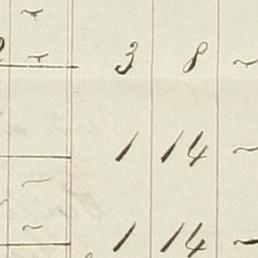 3 8 ~
1 14 ~
1 14 ~